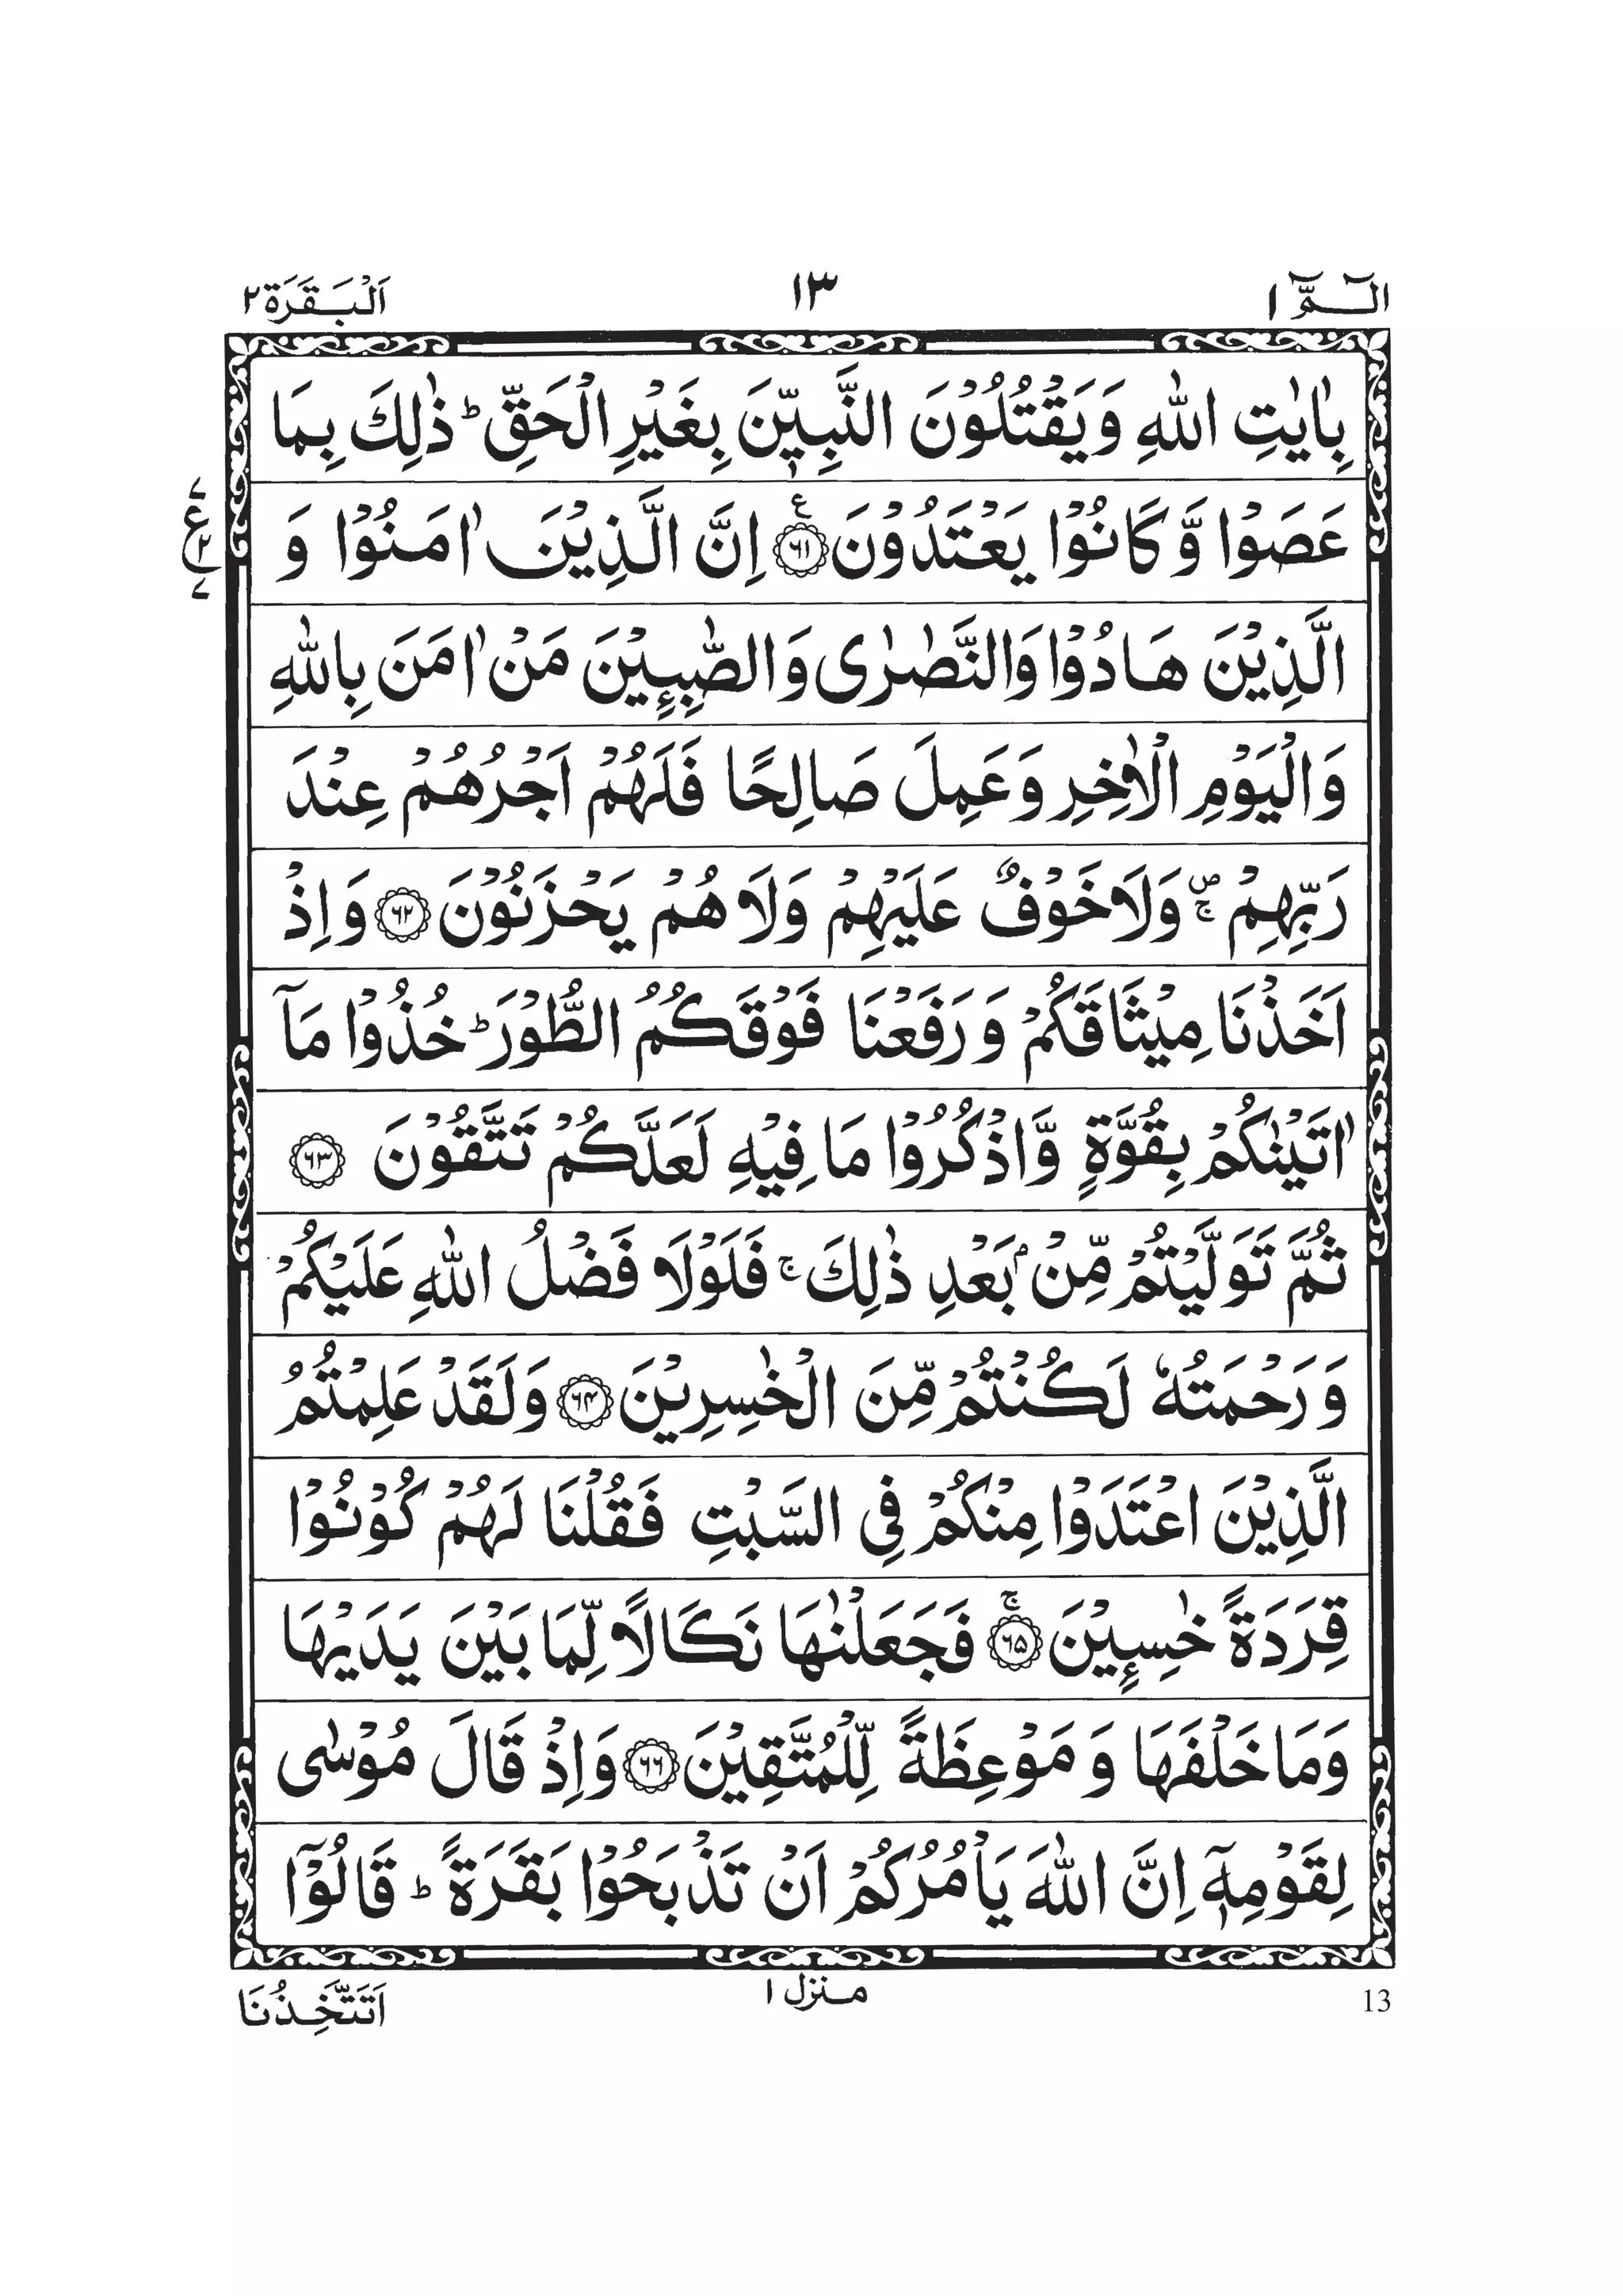 الٓمّٓ ۱
۱۳
اَلْبَقَرَة ۲
بِاٰیٰتِ اللّٰهِ وَ یَقْتُلُوْنَ النَّبِیّٖنَ بِغَیْرِ الْحَقِّ ؕ ذٰلِكَ بِمَا
عَصَوْا وَّ كَانُوْا یَعْتَدُوْنَ ﴿۶۱﴾ ع اِنَّ الَّذِیْنَ اٰمَنُوْا وَ
ع ۷ ۲ ۷
الَّذِیْنَ هَادُوْا وَ النَّصٰرٰی وَ الصّٰبِـِٕیْنَ مَنْ اٰمَنَ بِاللّٰهِ
وَ الْیَوْمِ الْاٰخِرِ وَ عَمِلَ صَالِحًا فَلَهُمْ اَجْرُهُمْ عِنْدَ
رَبِّهِمْ ۪ۚ وَ لَا خَوْفٌ عَلَیْهِمْ وَ لَا هُمْ یَحْزَنُوْنَ ﴿۶۲﴾ وَ اِذْ
اَخَذْنَا مِیْثَاقَكُمْ وَ رَفَعْنَا فَوْقَكُمُ الطُّوْرَ ؕ خُذُوْا مَاۤ
اٰتَیْنٰكُمْ بِقُوَّةٍ وَّ اذْكُرُوْا مَا فِیْهِ لَعَلَّكُمْ تَتَّقُوْنَ ﴿۶۳﴾
ثُمَّ تَوَلَّیْتُمْ مِّنْۢ بَعْدِ ذٰلِكَ ۚ فَلَوْ لَا فَضْلُ اللّٰهِ عَلَیْكُمْ
وَ رَحْمَتُهٗ لَكُنْتُمْ مِّنَ الْخٰسِرِیْنَ ﴿۶۴﴾ وَ لَقَدْ عَلِمْتُمُ
الَّذِیْنَ اعْتَدَوْا مِنْكُمْ فِی السَّبْتِ فَقُلْنَا لَهُمْ كُوْنُوْا
قِرَدَةً خٰسِـِٕیْنَ ﴿۶۵﴾ۚ فَجَعَلْنٰهَا نَكَالًا لِّمَا بَیْنَ یَدَیْهَا
وَ مَا خَلْفَهَا وَ مَوْعِظَةً لِّلْمُتَّقِیْنَ ﴿۶۶﴾ وَ اِذْ قَالَ مُوْسٰی
لِقَوْمِهٖۤ اِنَّ اللّٰهَ یَاْمُرُكُمْ اَنْ تَذْبَحُوْا بَقَرَةً ؕ قَالُوْۤا
13
منزل ۱
اَتَتَّخِذُنَا